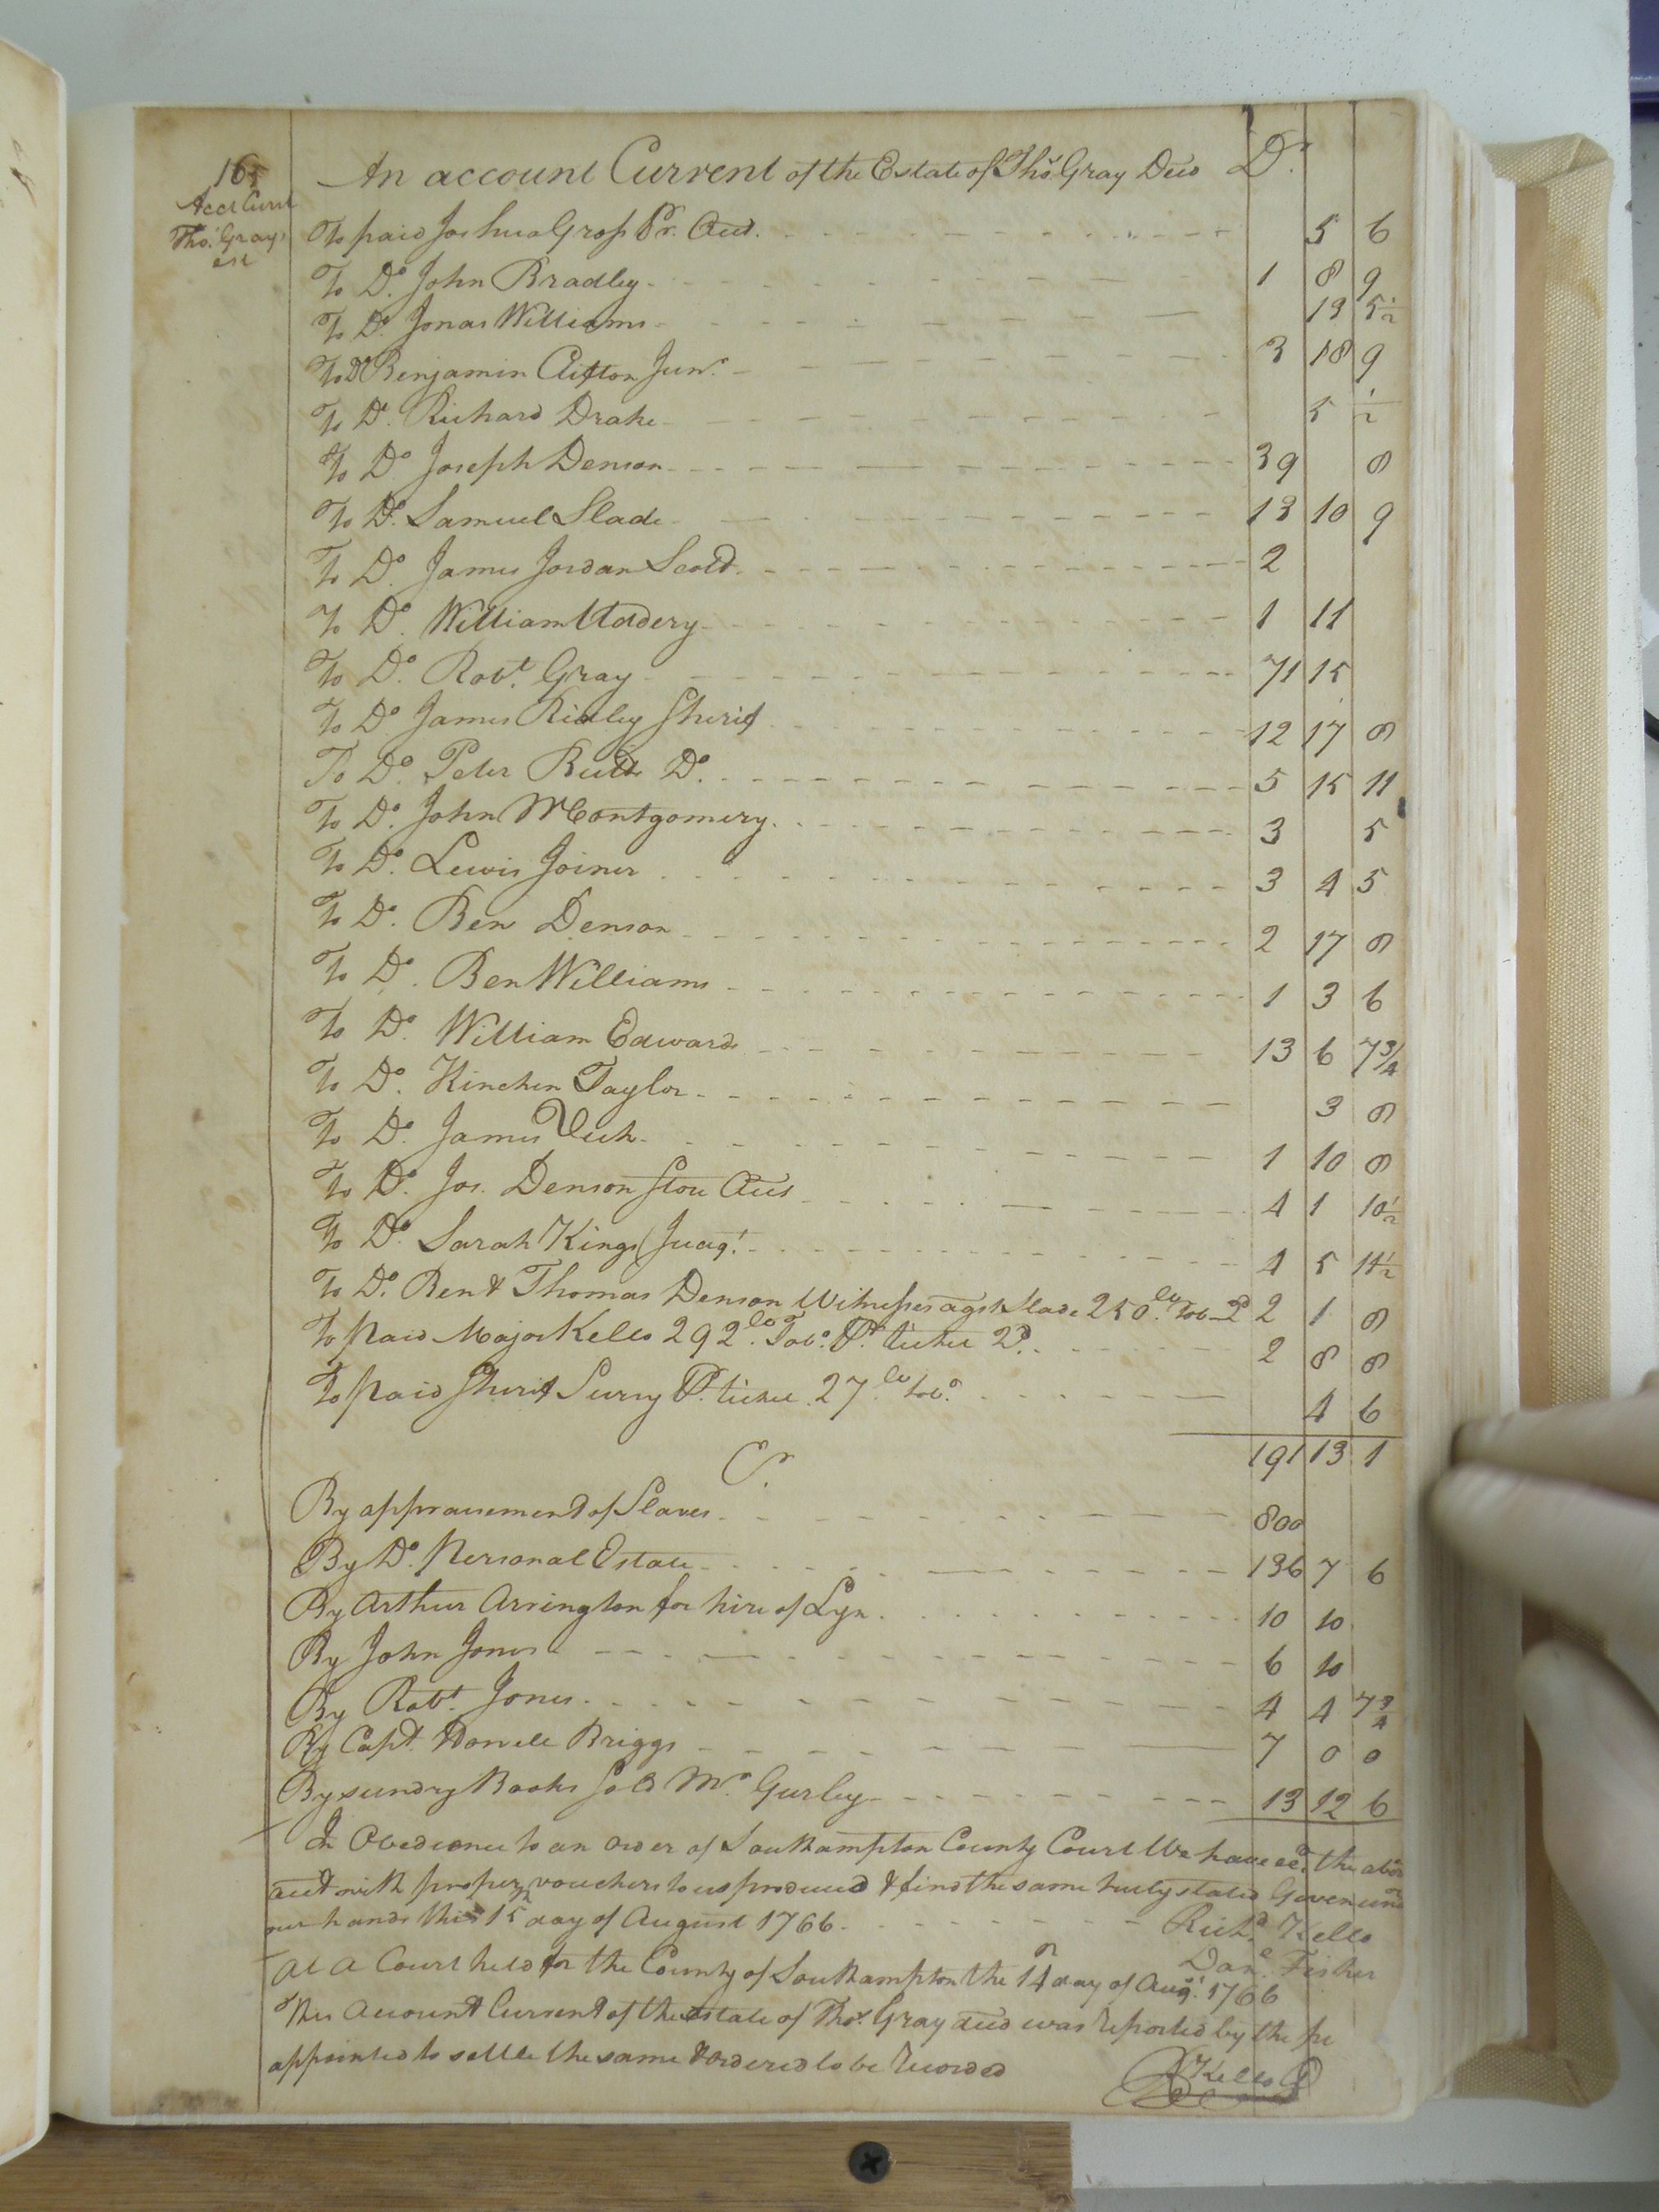 165
Acct Curt
Tho.s Gray's
est
An account Current of the Estate of Tho.s Gray Decd Dr.
To paid Joshua Gross Pr. Acct. 5 6
To Do. John Bradley 1 8 9
To Do. Jonas Williams 13 5½
To Do Benjamin Clifton Junr. 3 18 9
To Do. Richard Drake 5 ½
To Do Joseph Denson 39 8
To Do. Samuel Slade 13 10 9
To Do. James Jordan Scott 2
To Do. William Uttdery 1 11
To Do. Robt. Gray 71 15
To Do James Ridley Sherif 12 17 8
To Do. Peter Butts Do. 5 15 11
To Do. John McContgomery 3 5
To Do. Lewis Joiner 3 4 5
To Do. Ben Denson 2 17 8
To Do. Ben Williams 1 3 6
To Do. William Edwards 13 6 7¾
To Do. Kinchen Taylor 3 8
To Do. James Veck 1 10 8
To Do. Jos. Denson Stou Acct 4 1 10½
To Do. Sarah Kings Judgt. 4 5 11½
To Do. Ben & Thomas Denson Witnesses agst Slade 250 lb. Tob 2d 2 1 8
To paid Major Kello 292 lb. Tobo. Pr. ticket 2d. 2 8 8
To paid Sherif Surry Pr. ticket 27 lb Tobo. 4 6
191 13 1
Cr.
By appraisement of Slaves 800
By Do. Personal Estate 136 7 6
By Arthur Arrington for hire of Lyn 10 10
By John Jones 6 10
By Robt. Jones 4 4 7¾
By Capt. Howell Briggs 7 0 0
By sundry Books sold Mr. Gurley 13 12 6
In Obedience to an order of Southampton County Court We have exd. the abov
acct with proper vouchers to us produced & find the same truly stated Given und
our hands this 15 day of August 1766. Richd. Kello
Danl. Fisher
At a Court held for the County of Southampton the 14 day of Augt. 1766
This Account Current of the Estate of Thos. Gray decd was reported by the pe
appointed to settle the same & ordered to be Recorded
R Kello